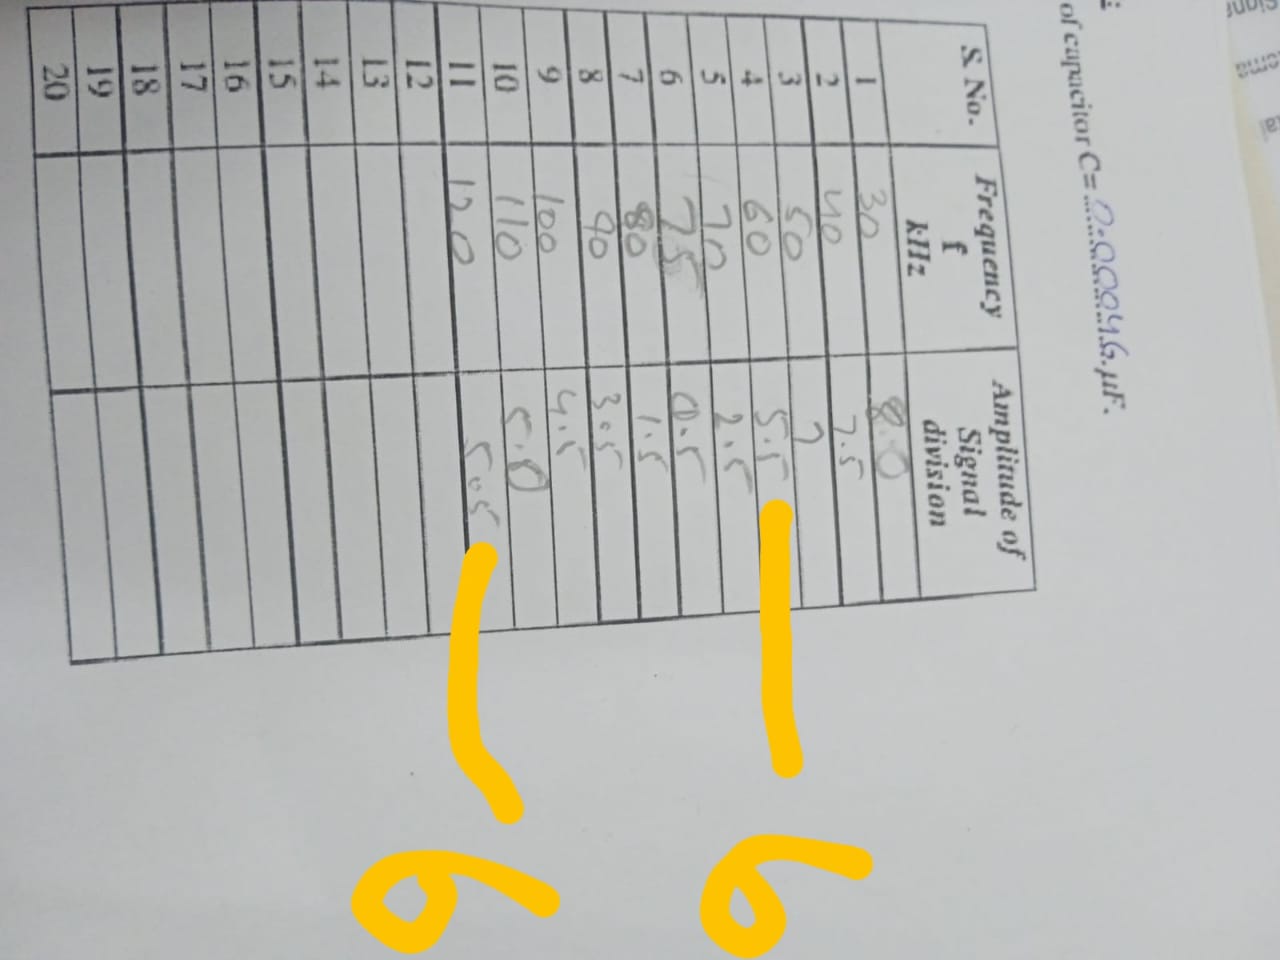 of capacitor C= 0.00046 µF.
S. No. Frequency f kHz Amplitude of Signal division
1 30 8.0
2 40 7.5
3 50 7
4 60 5.5 6
5 70 2.5
6 75 0.5
7 80 1.5
8 90 3.5
9 100 4.5
10 110 5.0
11 120 5.5 6
12
13
14
15
16
17
18
19
20